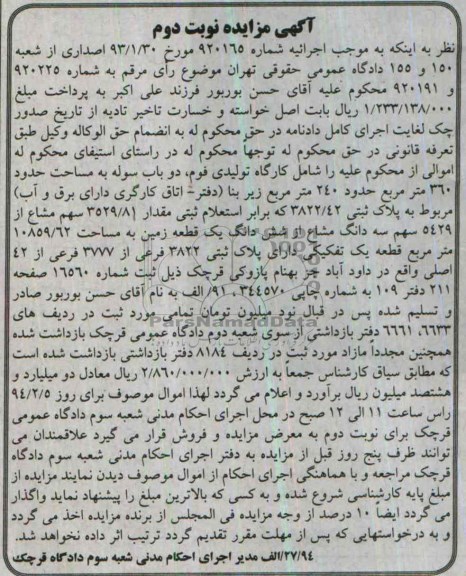 آگهی مزایده نوبت دوم
نظر به اینکه به موجب اجرائیه شماره ۹۲۰۱۶۵ مورخ ۹۳/۱/۳۰ اصداری از شعبه
۱۵۰ و ۱۵۵ دادگاه عمومی حقوقی تهران موضوع رأی مرقم به شماره ۹۲۰۲۲۵
و ۹۲۰۱۹۱ محکوم علیه آقای حسن بوربور فرزند علی اکبر به پرداخت مبلغ
۱/۲۳۳/۱۳۸/۰۰۰ ریال بابت اصل خواسته و خسارت تاخیر تادیه از تاریخ صدور
چک لغایت اجرای کامل دادنامه در حق محکوم له به انضمام حق الوکاله وکیل طبق
تعرفه قانونی در حق محکوم له توجهاً محکوم له در راستای استیفای محکوم له
اموالی از محکوم علیه را شامل کارگاه تولیدی فوم، دو باب سوله به مساحت حدود
۳۶۰ متر مربع حدود ۲۴۰ متر مربع زیر بنا (دفتر- اتاق کارگری دارای برق و آب)
مربوط به پلاک ثبتی ۳۸۲۲/۴۲ که برابر استعلام ثبتی مقدار ۳۵۲۹/۸۱ سهم مشاع از
۵۴۲۹ سهم سه دانگ مشاع از شش دانگ یک قطعه زمین به مساحت ۱۰۸۵۹/۶۲
متر مربع قطعه یک تفکیکی دارای پلاک ثبتی ۳۸۲۲ فرعی از ۳۷۷۷ فرعی از ۴۲
اصلی واقع در داود آباد جز بهنام پازوکی قرچک ذیل ثبت شماره ۱۶۵۶۰ صفحه
۲۱۱ دفتر ۱۰۹ به شماره چاپی ۳۴۴۵۷۰، ۹۱/ الف به نام آقای حسن بوربور صادر
و تسلیم شده پس در قبال نود میلیون تومان تمامی مورد ثبت در ردیف های
۶۶۳۳، ۶۶۶۱ دفتر بازداشتی از سوی شعبه دوم دادگاه عمومی قرچک بازداشت شده
همچنین مجدداً مازاد مورد ثبت در ردیف ۸۱۸۴ دفتر بازداشتی بازداشت شده است
که مطابق سیاق کارشناس جمعاً به ارزش ۲/۸۶۰/۰۰۰/۰۰۰ ریال معادل دو میلیارد و
هشتصد میلیون ریال برآورد و اعلام می گردد لهذا اموال موصوف برای روز ۹۴/۲/۵
راس ساعت ۱۱ الی ۱۲ صبح در محل اجرای احکام مدنی شعبه سوم دادگاه عمومی
قرچک برای نوبت دوم به معرض مزایده و فروش قرار می گیرد علاقمندان می
توانند ظرف پنج روز قبل از مزایده به دفتر اجرای احکام مدنی شعبه سوم دادگاه
قرچک مراجعه و با هماهنگی اجرای احکام از اموال موصوف دیدن نمایند مزایده از
مبلغ پایه کارشناسی شروع شده و به کسی که بالاترین مبلغ را پیشنهاد نماید واگذار
می گردد ایضاً ۱۰ درصد از وجه مزایده فی المجلس از برنده مزایده اخذ می گردد
و به درخواستهایی که پس از مهلت مقرر تقدیم گردد ترتیب اثر داده نخواهد شد.
۲۷/۹۴/الف مدیر اجرای احکام مدنی شعبه سوم دادگاه قرچک
ParsNamadData